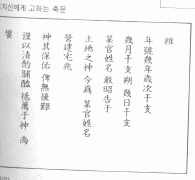 지신에게 고하는 축문
維
年號幾年歲次干支
幾月干支朔 幾日干支
某官姓名 敢昭告于
土地之神 今爲 某官姓名
營建宅兆
神其保佑 俾無後艱
謹以淸酌脯醢 祗薦于神 尙
饗